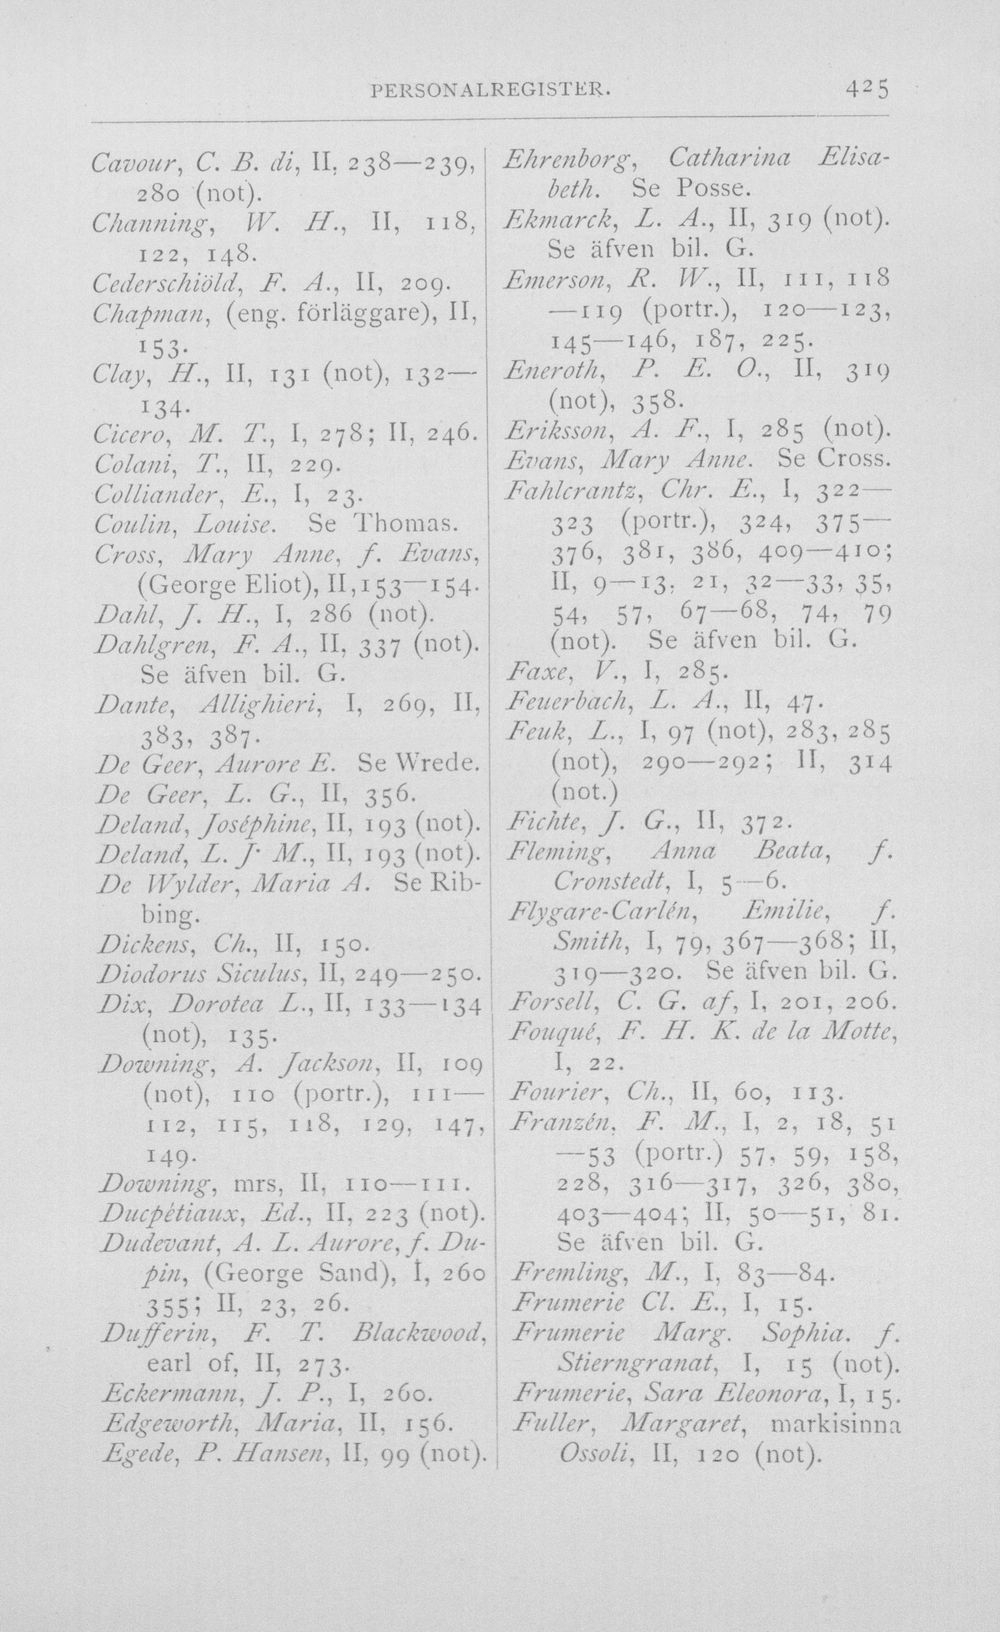 PERSONALREGISTER. 425
Cavour, C. B. di, II, 238—239,
280 (not).
Channing, W. H., II, 118,
122, 148.
Cederschiöld, F. A., II, 209.
Chapman, (eng. förläggare), II,
153.
Clay, H., II, 131 (not), 132—
134.
Cicero, M. T., I, 278; II, 246.
Colani, T., II, 229.
Colliander, E., I, 23.
Coulin, Louise. Se Thomas.
Cross, Mary Anne, f. Evans,
(George Eliot), II, 153—154.
Dahl, J. H., I, 286 (not).
Dahlgren, F. A., II, 337 (not).
Se äfven bil. G.
Dante, Allighieri, I, 269, II,
383, 387.
De Geer, Aurore E. Se Wrede.
De Geer, L. G., II, 356.
Deland, Joséphine, II, 193 (not).
Deland, L. J. M., II, 193 (not).
De Wylder, Maria A. Se Rib-
bing.
Dickens, Ch., II, 150.
Diodorus Siculus, II, 249—250.
Dix, Dorotea L., II, 133—134
(not), 135.
Downing, A. Jackson, II, 109
(not), 110 (portr.), 111—
112, 115, 118, 129, 147,
149.
Downing, mrs, II, 110—111.
Ducpétiaux, Ed., II, 223 (not).
Dudevant, A. L. Aurore, f. Du-
pin, (George Sand), I, 260
355; II, 23, 26.
Dufferin, F. T. Blackwood,
earl of, II, 273.
Eckermann, J. P., I, 260.
Edgeworth, Maria, II, 156.
Egede, P. Hansen, II, 99 (not).
Ehrenborg, Catharina Elisa-
beth. Se Posse.
Ekmarck, L. A., II, 319 (not).
Se äfven bil. G.
Emerson, R. W., II, 111, 118
—119 (portr.), 120—123,
145—146, 187, 225.
Eneroth, P. E. O., II, 319
(not), 358.
Eriksson, A. F., I, 285 (not).
Evans, Mary Anne. Se Cross.
Fahlcrantz, Chr. E., I, 322—
323 (portr.), 324, 375—
376, 381, 386, 409—410;
II, 9—13, 21, 32—33, 35,
54, 57, 67—68, 74, 79
(not). Se äfven bil. G.
Faxe, V., I, 285.
Feuerbach, L. A., II, 47.
Feuk, L., I, 97 (not), 283, 285
(not), 290—292; II, 314
(not.)
Fichte, J. G., II, 372.
Fleming, Anna Beata, f.
Cronstedt, I, 5—6.
Flygare-Carlén, Emilie, f.
Smith, I, 79, 367—368; II,
319—320. Se äfven bil. G.
Forsell, C. G. af, I, 201, 206.
Fouqué, F. H. K. de la Motte,
I, 22.
Fourier, Ch., II, 60, 113.
Franzén, F. M., I, 2, 18, 51
—53 (portr.) 57, 59, 158,
228, 316—317, 326, 380,
403—404; II, 50—51, 81.
Se äfven bil. G.
Fremling, M., I, 83—84.
Frumerie Cl. E., I, 15.
Frumerie Marg. Sophia. f.
Stierngranat, I, 15 (not).
Frumerie, Sara Eleonora, I, 15.
Fuller, Margaret, markisinna
Ossoli, II, 120 (not).